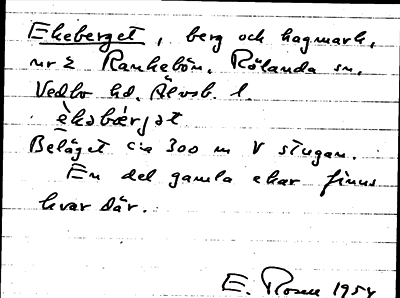 Ekeberget, berg och hagmark,
nr 2 Rankebön, Rölanda sn,
Vedbo hd, Älvsb. l.
èkabærjat
Beläget ca 300 m V stugan.
En del gamla ekar finns
kvar där.
E. Rosen 1954